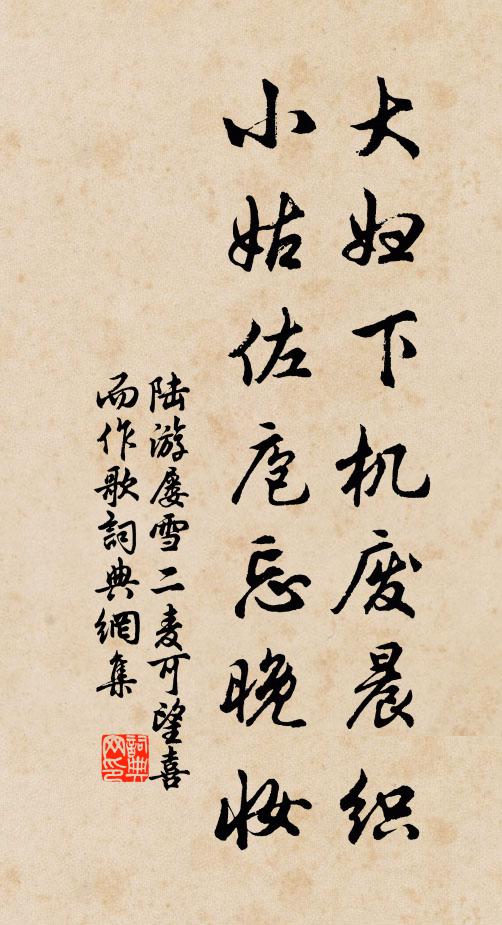 大妇下机废晨织
小姑佐庖忘晚妆
陆游屡雪二麦可望喜
而作歌詞典網集
詞典
网印